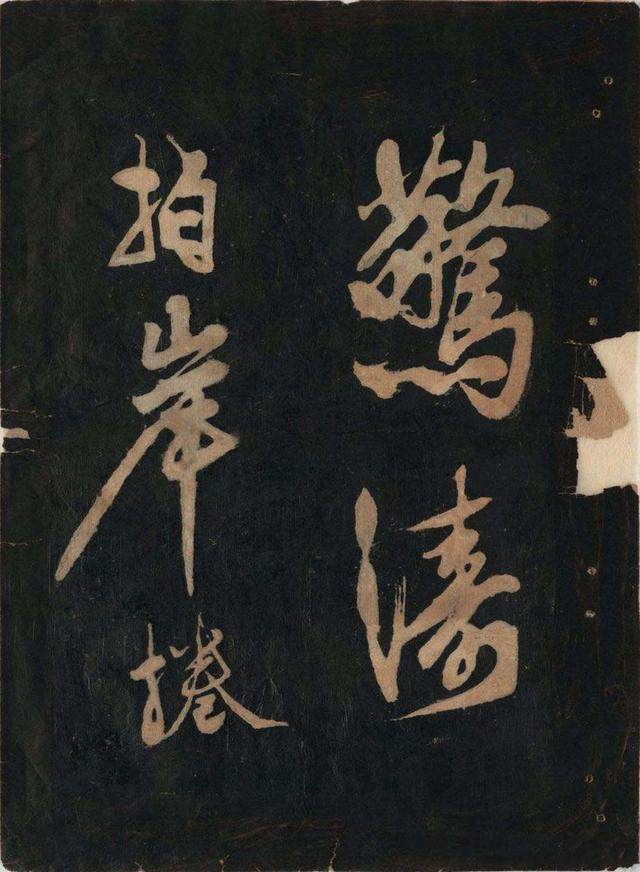 驚濤
拍岸捲